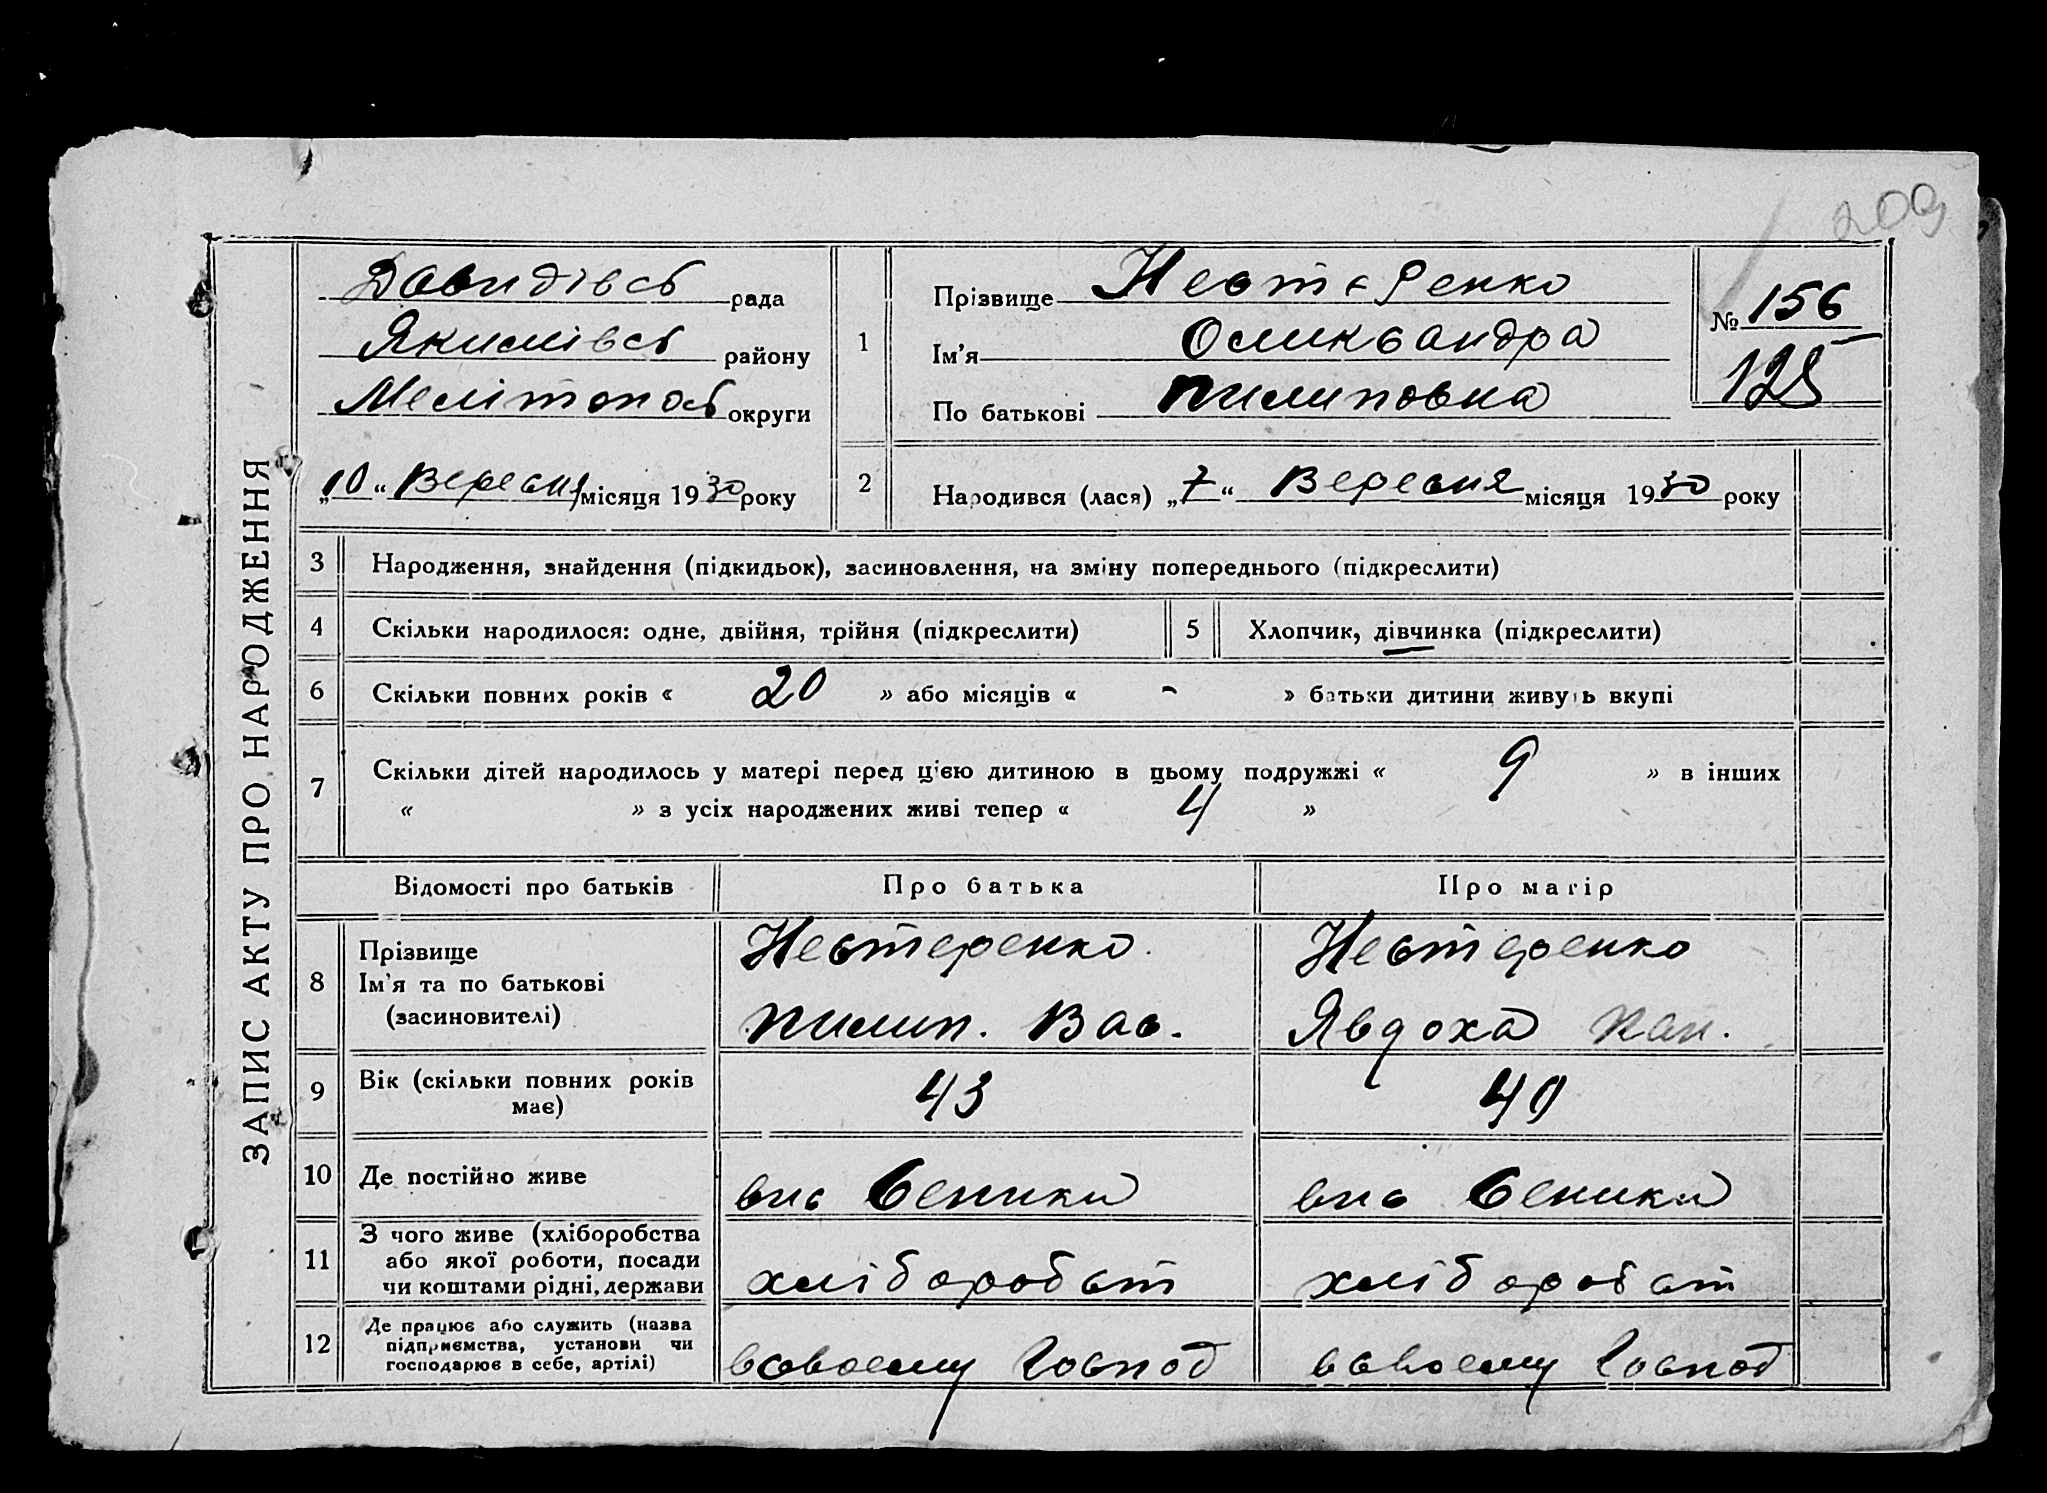 209
ЗАПИС АКТУ ПРО НАРОДЖЕННЯ
Давидівсь рада
Якимівсь району
Мелітопось округи
„10“ Вересня місяця 1930 року
1
Прізвище Нестеренко
Ім'я Оликсандра
По батькові Пилиповна
№ 156
125
2
Народився (лася) „7“ Вересня місяця 1930 року
3 Народження, знайдення (підкидьок), засиновлення, на зміну попереднього (підкреслити)
4 Скільки народилося: одне, двійня, трійня (підкреслити)
5 Хлопчик, дівчинка (підкреслити)
6 Скільки повних років « 20 » або місяців « - » батьки дитини живуть вкупі
7 Скільки дітей народилось у матері перед цією дитиною в цьому подружжі « 9 » в інших
« » з усіх народжених живі тепер « 4 »
Відомості про батьків Про батька Про матір
8 Прізвище Нестеренко Нестеренко
Ім'я та по батькові
(засиновителі) Пилип. Вас. Явдоха
9 Вік (скільки повних років
має) 43 40
10 Де постійно живе вис Сеники вис Сеники
11 З чого живе (хліборобства
або якої роботи, посади
чи коштами рідні, держави хліборобст хліборобст
12 Де працює або служить (назва
підприємства, установи чи
господарює в себе, артілі) всвоему Господ всвоему Господ